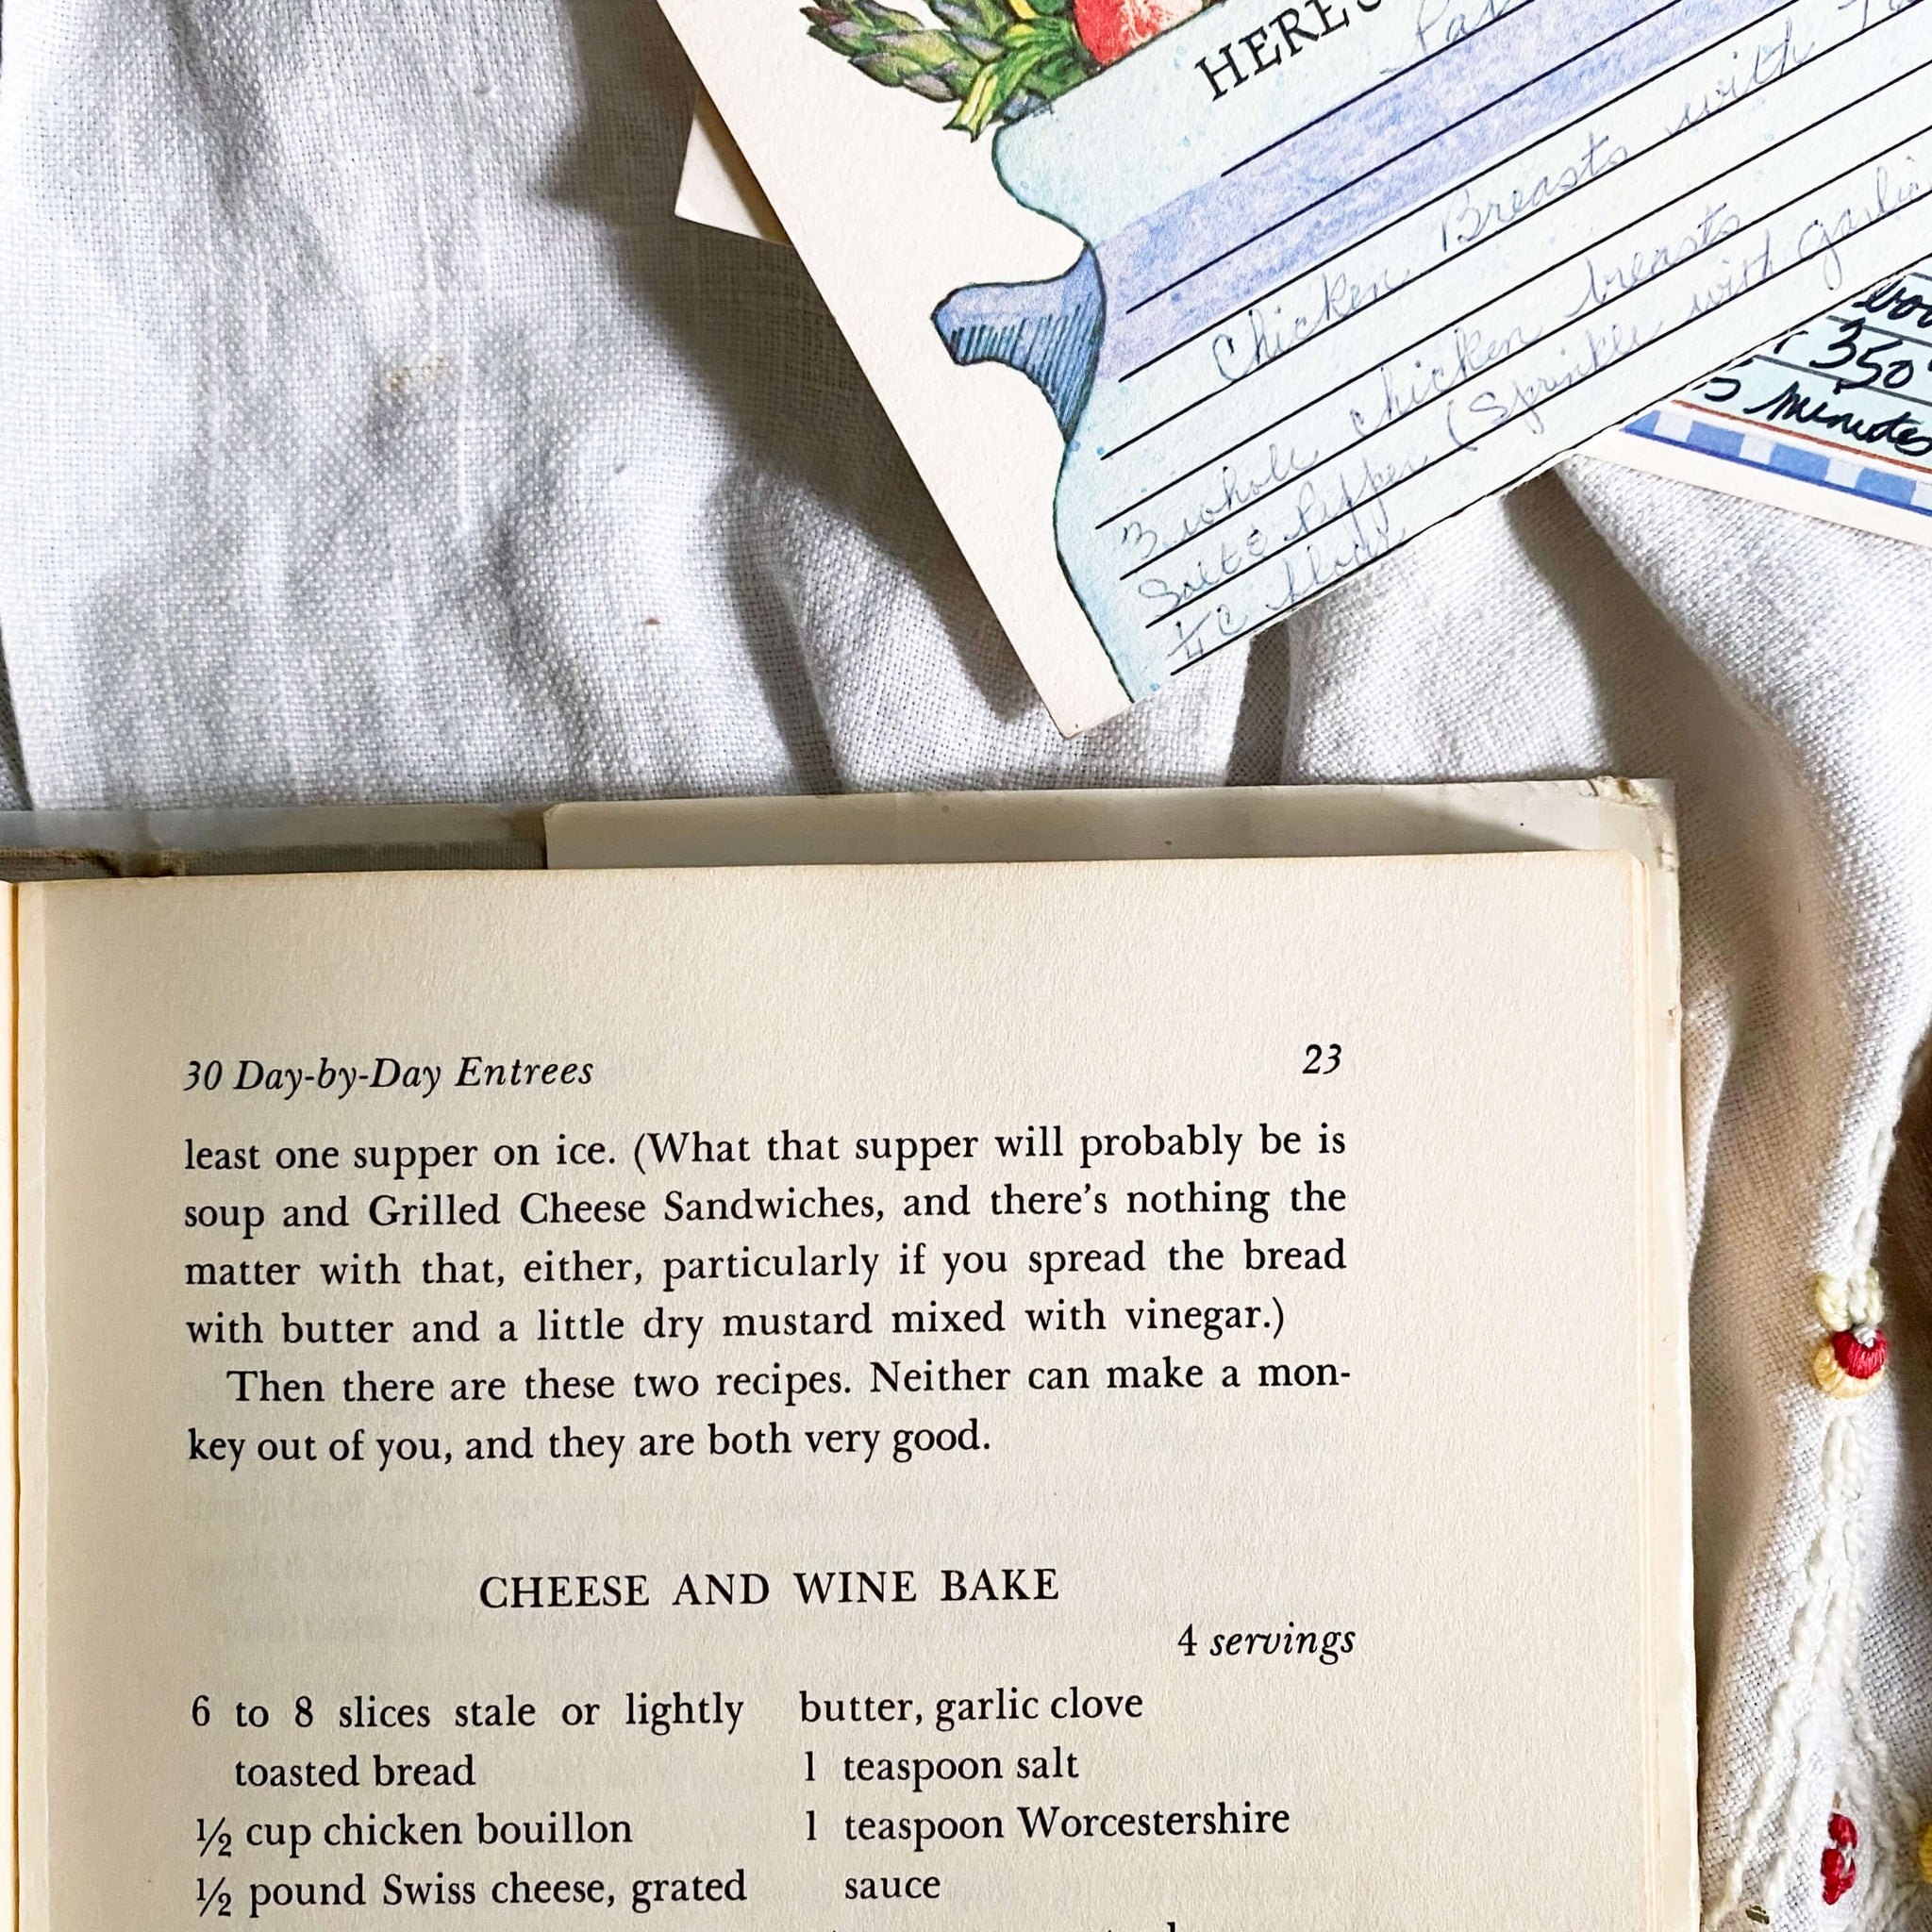 HERE'S
Chicken Breasts with
3 whole chicken breasts
Salt & Pepper (Sprinkle with garlic
350°
5 minutes
30 Day-by-Day Entrees 23
least one supper on ice. (What that supper will probably be is
soup and Grilled Cheese Sandwiches, and there's nothing the
matter with that, either, particularly if you spread the bread
with butter and a little dry mustard mixed with vinegar.)
Then there are these two recipes. Neither can make a mon-
key out of you, and they are both very good.
CHEESE AND WINE BAKE
4 servings
6 to 8 slices stale or lightly
toasted bread
½ cup chicken bouillon
½ pound Swiss cheese, grated
butter, garlic clove
1 teaspoon salt
1 teaspoon Worcestershire
sauce